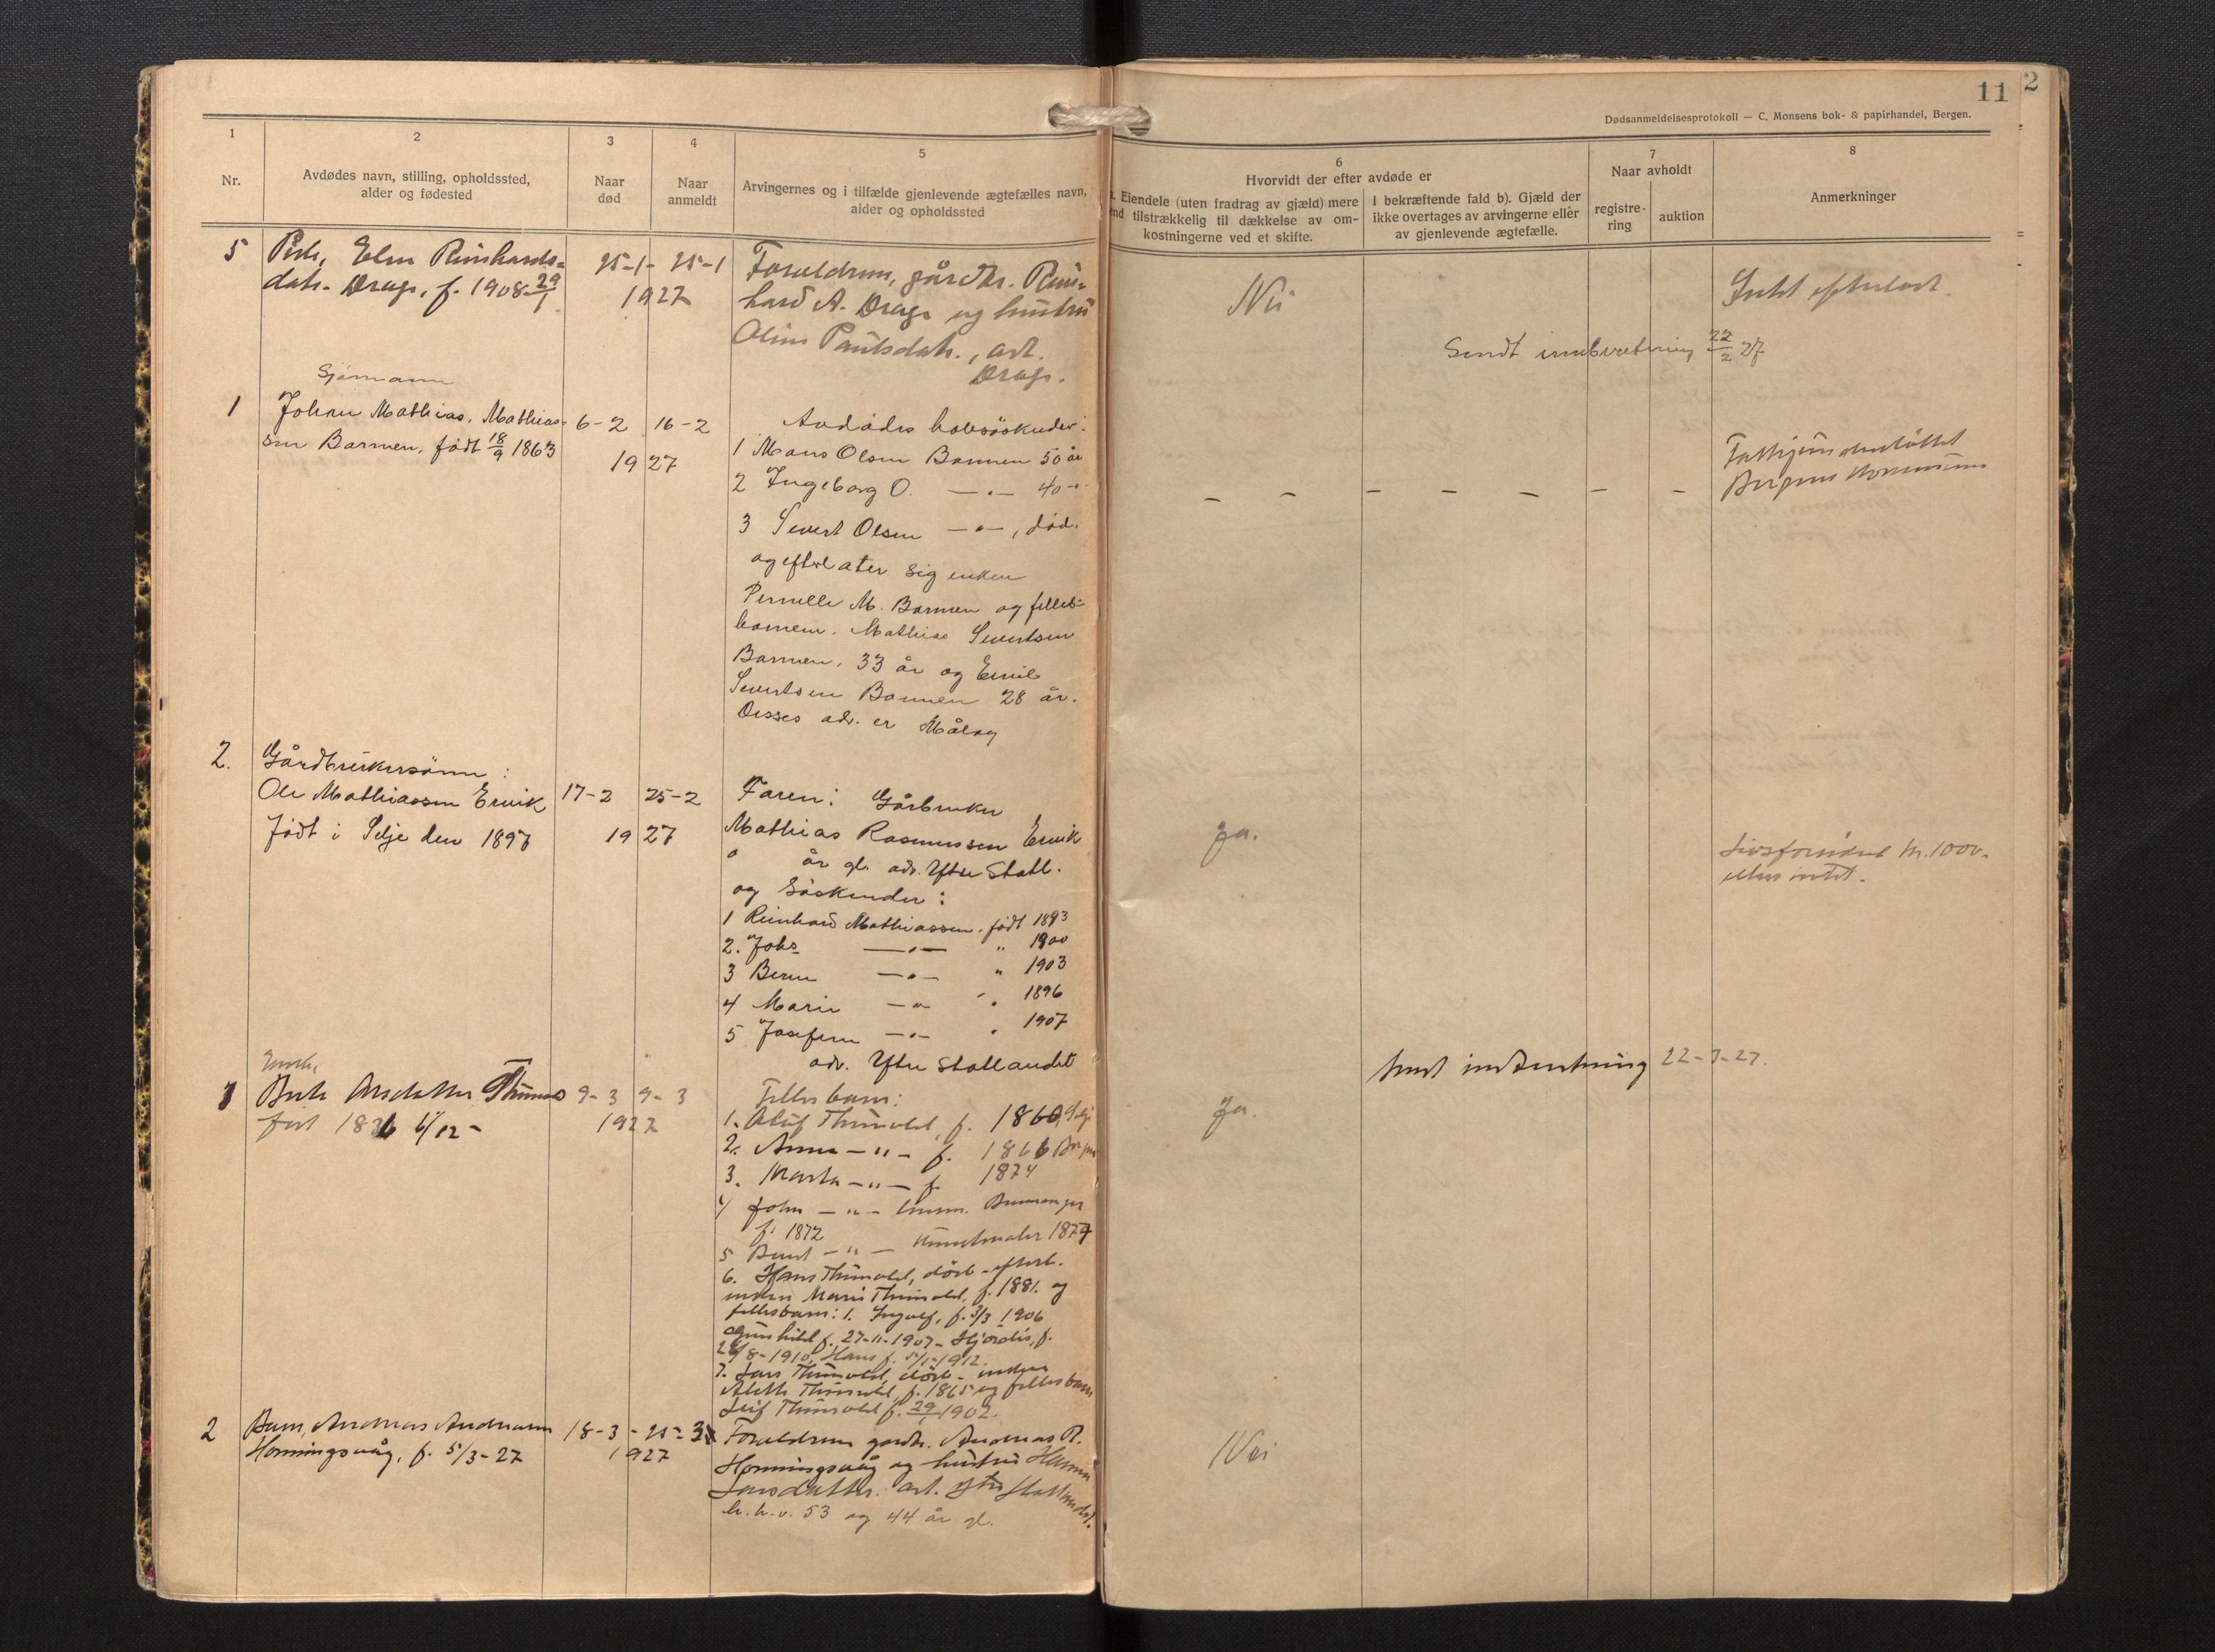 11
2
Dødsanmeldelsesprotokoll — C. Monsens bok- & papirhandel, Bergen.
1
Nr.
2
Avdødes navn, stilling, opholdssted,
alder og fødested
3
Naar
død
4
Naar
anmeldt
5
Arvingernes og i tilfælde gjenlevende ægtefælles navn,
alder og opholdssted
6
Hvorvidt der efter avdøde er
Eiendele (uten fradrag av gjæld) mere
end tilstrækkelig til dækkelse av om-
kostningerne ved et skifte.
I bekræftende fald b). Gjæld der
ikke overtages av arvingerne eller
av gjenlevende ægtefælle.
7
Naar avholdt
registre-
ring
auktion
8
Anmerkninger
5
Pike, Elen Reinhards-
datr. Drage, f. 1908 29/1
25-1- 25-1
1927
Foreldrene, gårdbr. Rein-
hard A. Drage og hustru
Oline Paulsdatr., adr.
Drage.
Nei
Intet efterladt.
Sendt innberetning 22/2 27
Sjömann
1
Johan Mathias, Mathias-
sen Barmen, født 18/9 1863
6-2 16-2
1927
Avdødes halvsöskender:
1 Mons Olsen Barmen 50 år
2 Ingeborg O. —"— 40 -"-
3 Sivert Olsen —"—, død.
og efterlater sig enken
Pernelle M. Barmen og felles-
barnene. Mathias Sivertsen
Barmen, 33 år og Emil
Sivertsen Barmen 28 år.
Disses adr. er Måløy
— — — — — — —
Bergens Kommune
2.
Gårdbrukersönn:
Ole Mathiassen Ervik
født i Selje den 1897
17-2 25-2
1927
Faren: Gårbruker
Mathias Rasmussen Ervik
år gl. adr. Ytre Statl.
og Söskender:
1 Reinhard Mathiassen, født 1893
2. Johs —"— " 1900
3 Bern —"— " 1903
4 Marie —"— " 1896
5 Josefine —"— " 1907
adr. Ytre Statlandet
Ja.
Livsforsikret kr. 1000.-
ellers intet.
Sendt indberetning 22-3-27.
Enke,
1
Berte Thunold
født 1836 6/12 -
9-3 9-3
1927
Felles barn:
1. Oluf Thunold, f. 1860, Selje
2. Anna —"— f. 1866 Bergen
3. Marta —"— f 1874
4 John —"—
f. 1872
5 Bernt —"— Kunstmaler 1877
6. Hans Thunold, död - efterl.
enken Marie Thunold, f. 1881. og
fellesbarn: 1. Ingolf, f. 3/3 1906
Gunhild f. 27-11-1907 - Hjördis, f.
24/8-1910, Hans f. 5/1-1912.
7. Lars Thunold, död - enken
Aleth Thunold, f. 1865 og felles barn
Leif Thunold f. 29/1 1902.
Ja.
2
Barn, Andreas Andreassen
Honningsvåg, f. 5/3-27
18-3 - 25-3
1927
Foreldrene gardbr. Andreas R.
Honningsvåg og hustru Hanna
Larsdatter. adr. Ytre Statlandet.
h.h.v. 53 og 44 år gl.
Nei